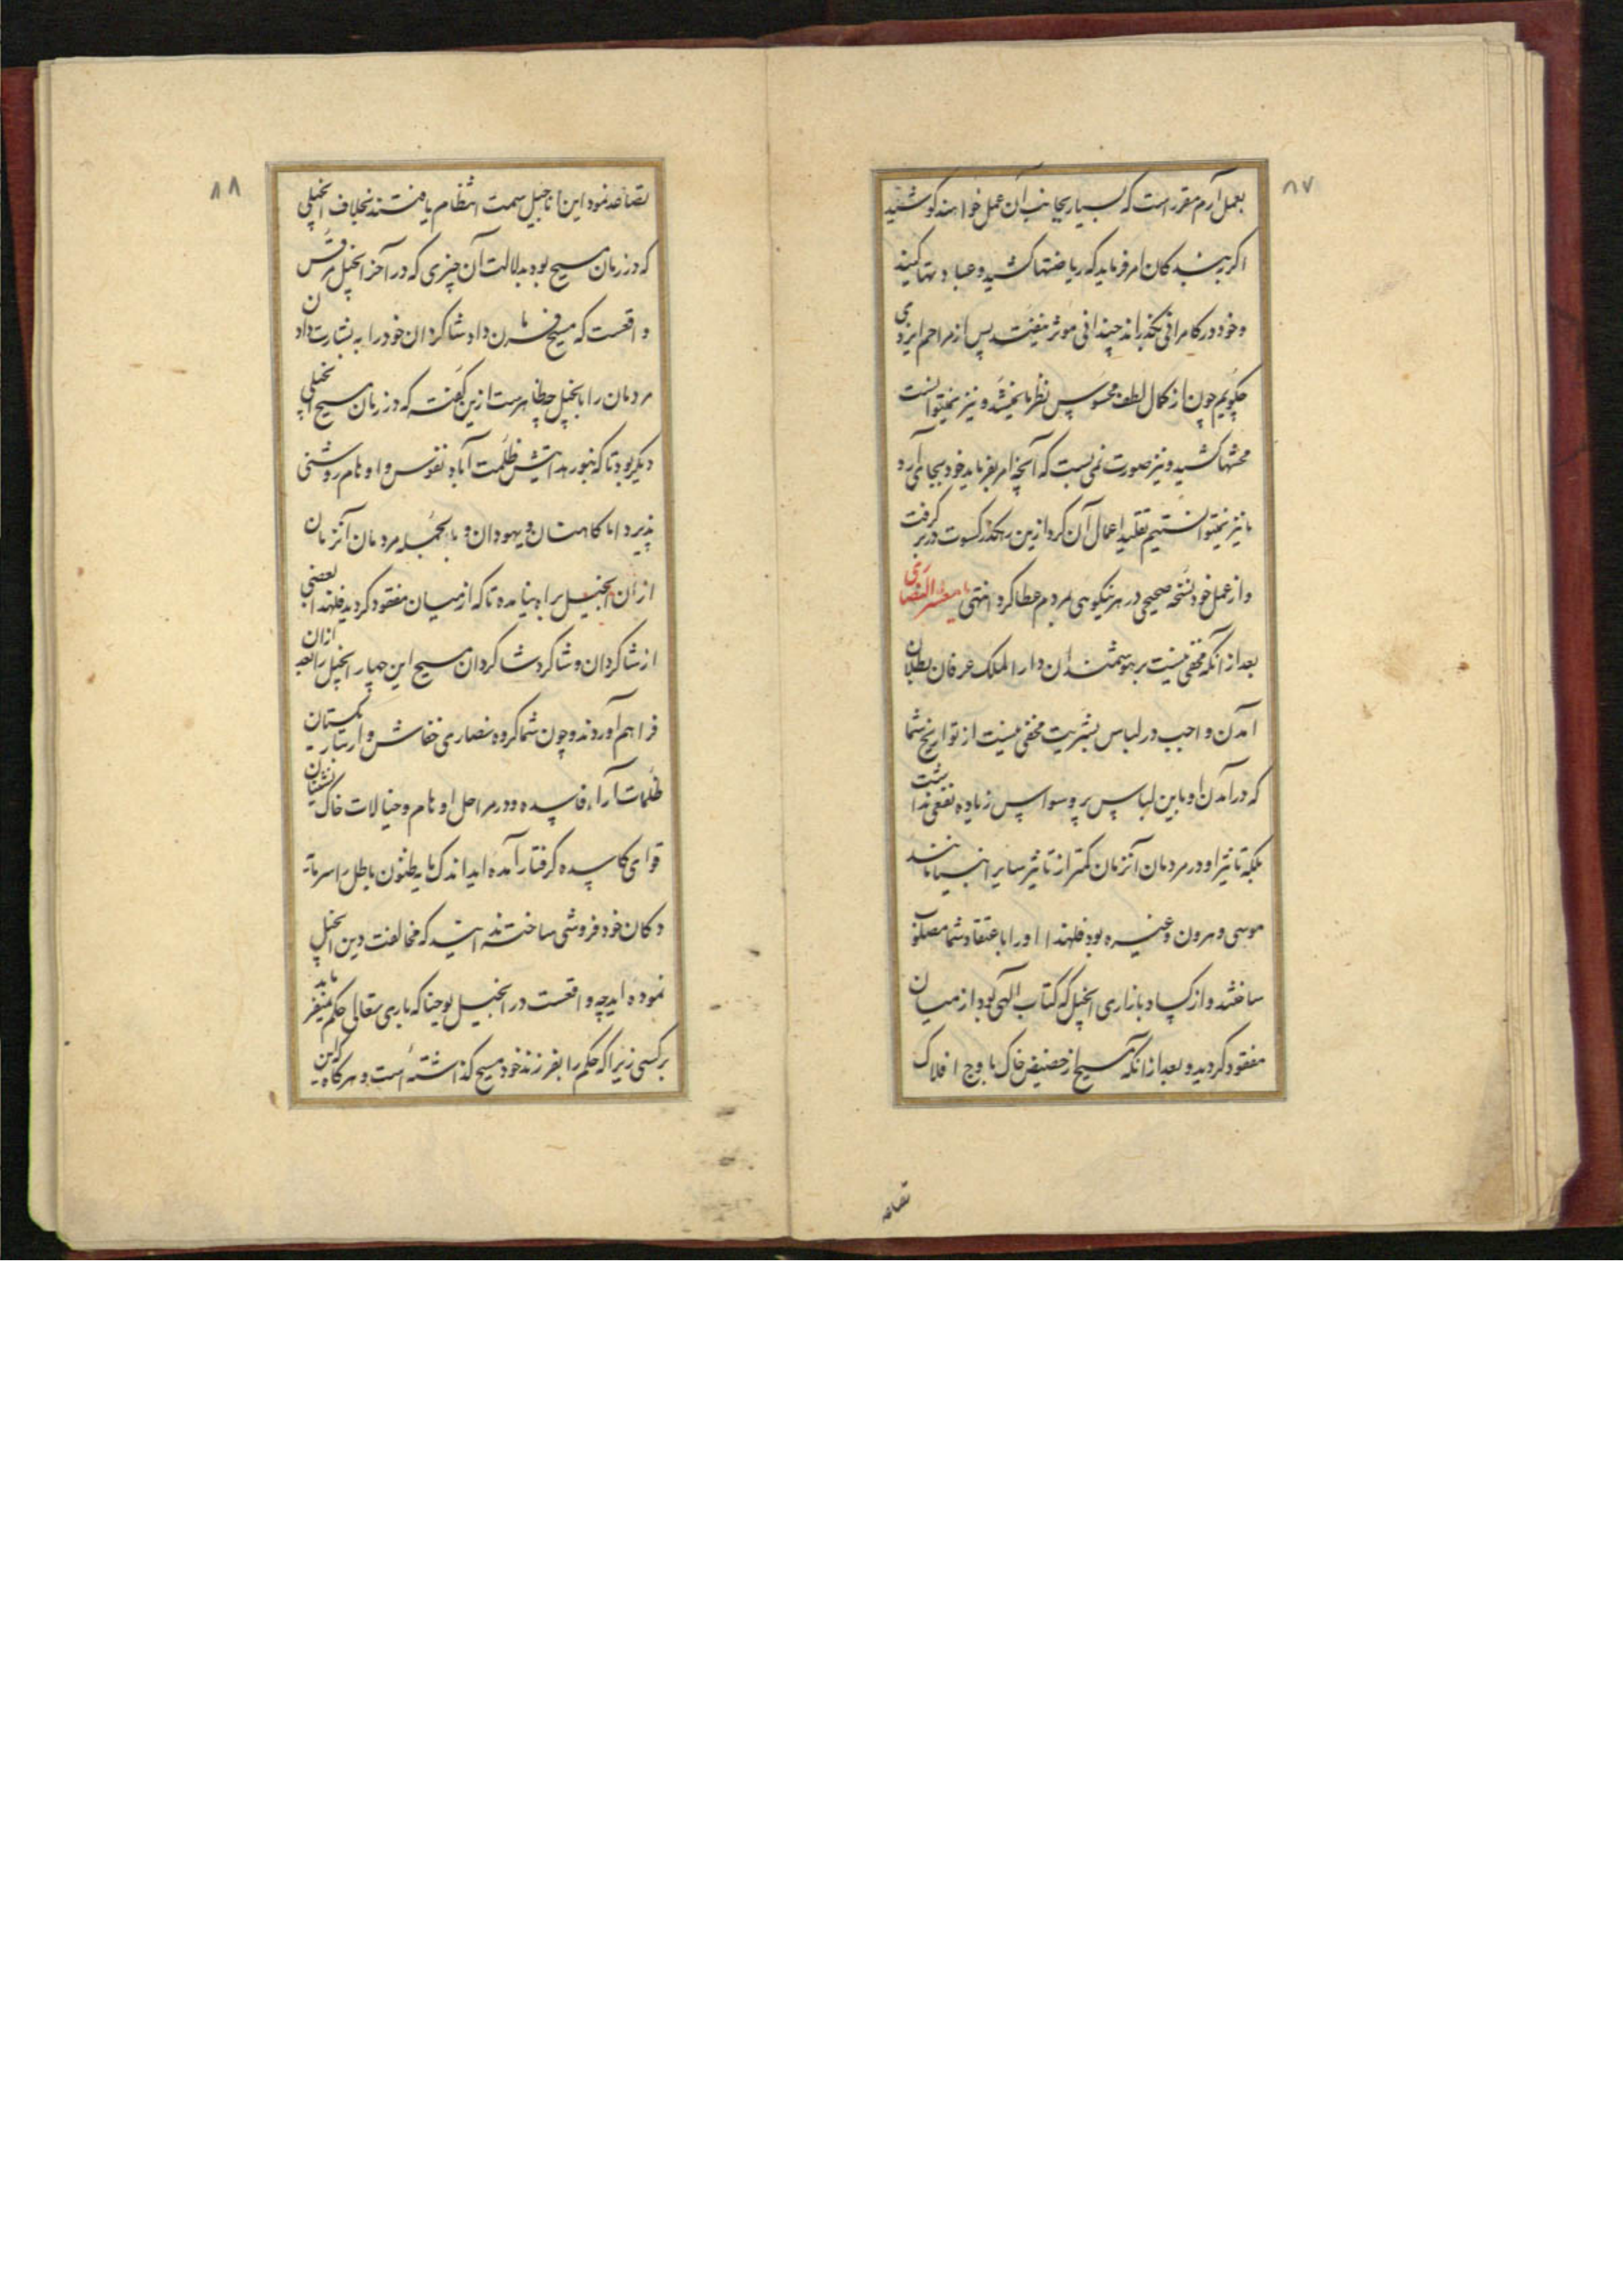 ٨٧
بعمل آرم مقررست که بسیار بجانب آن عمل خواهند کوشید
اکر به بندکان امر فرماید که ریاضتها کشید و عبادتها کنید
و خود در کامرانی بکذراند چندانی مؤثر نیفتد پس از مراحم ایزدی
چکویم چون از کمال لطف محسوس نظر ما نمیشد و نیز نمیتوانست
محنتها کشید و نیز صورت نمی بست که آنچه امر بفرماید خود بجا می آرد
ما نیز نمیتوانستیم تقلید اعمال آن کرد ازین رهکذر کسوت در بر گرفت
و از عمل خود نسخه صحیحی در هر نیکویی بمردم عطا کرد انتهی یا معشر النصاری
بعد از آنکه مخفی نیست بر هوشمندان دار الملک عرفان بطلان
آمدن واجب در لباس بشریت مخفی نیست از تواریخ شما
که در آمدن او باین لباس پر وسواس زیاده نفعی نداشت
بلکه تاثیر او در مردمان آنزمان کمتر از تاثیر سایر انبیا مانند
موسی و هرون و غیره بود فلهذا او را باعتقاد شما مصلوب
ساختند و از کساد بازاری انجیل که کتاب الهی بود از میان
مفقود کردید و بعد از آنکه مسیح از حضیض خاک باوج افلاک
تصاعد
٨٨
تصاعد نمود این اناجیل سمت انتظام یافتند بخلاف انجیلی
که در زمان مسیح بود بدلالت آن چیزی که در آخر انجیل مرقس
واقعست که مسیح فرمان داد شاکردان خود را به بشارت دادن
مردمان را بانجیل چه ظاهرست ازین گفته که در زمان مسیح انجیلی
دیکر بود تا که بنور هدایتش ظلمت آباد نفوس و اوهام روشنی
پذیرد اما کاهنان و یهودان و بالجمله مردمان آنزمان
از آن انجیل براه نیامده تا که از میان مفقود کردید فلهذا بعضی
از شاکردان و شاکرد شاکردان مسیح این چهار انجیل را بعد از آن
فراهم آوردند و چون شما کروه نصاری خفاش وار در تنکستان
ظلمات آراء فاسده و در مراحل اوهام و خیالات خاک نشینان
قوای کاسده کرفتار آمده اید اندک مایه ظنون باطل را سرمایه
دکان خود فروشی ساخته اید که مخالفت دین انجیل
نموده اید چه واقعست در انجیل یوحنا که باری تعالی حکم نمیفرماید
بر کسی زیرا که حکم را بفرزند خود مسیح کذاشته است و هرکاه این